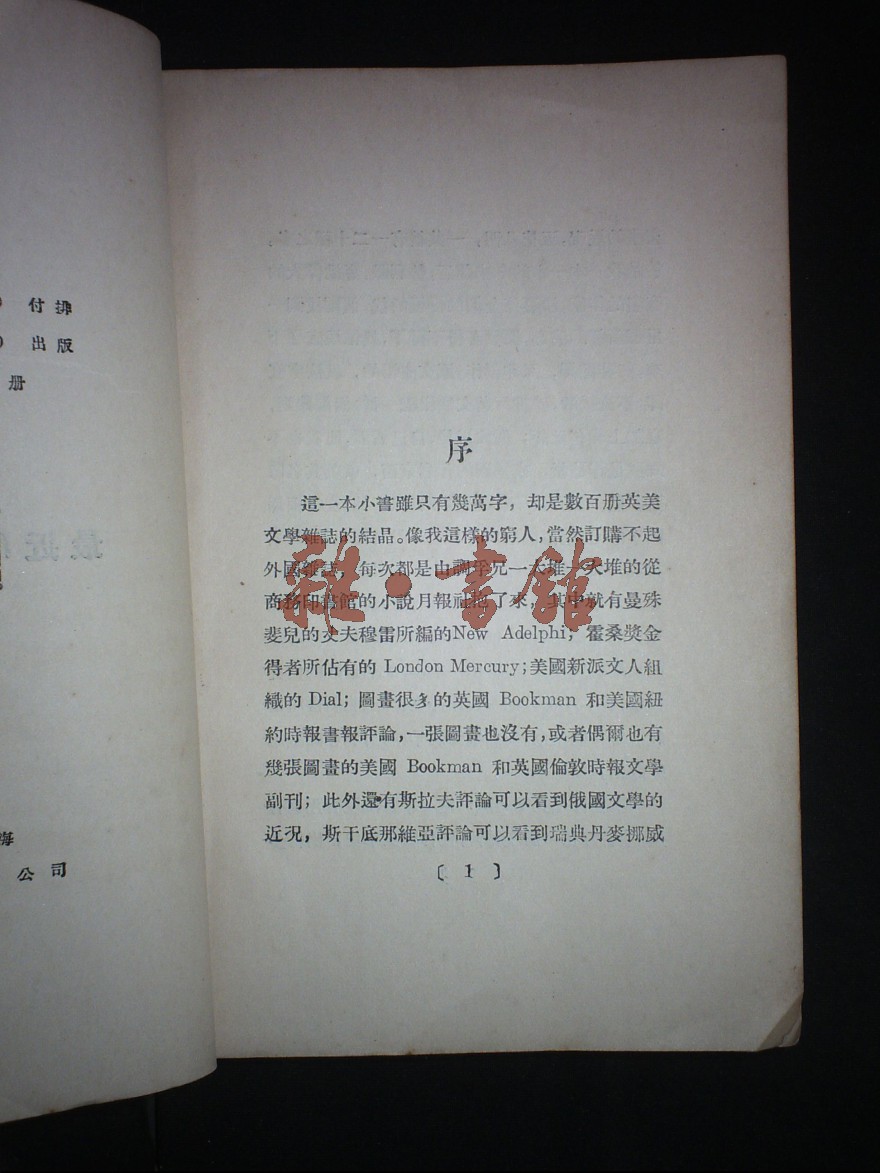 付排
出版
册
海
公司
序
這一本小書雖只有幾萬字，却是數百册英美
文學雜誌的結品。像我這樣的窮人，當然訂購不起
外國雜誌，每次都是由調孚兄一大堆一大堆的從
商務印書館的小說月報社抱了來，其中就有曼殊
斐兒的丈夫穆雷所編的New Adelphi；霍桑獎金
得者所佔有的 London Mercury；美國新派文人組
織的 Dial；圖畫很多的英國 Bookman 和美國紐
約時報書報評論，一張圖畫也沒有，或者偶爾也有
幾張圖畫的美國 Bookman 和英國倫敦時報文學
副刊；此外還有斯拉夫評論可以看到俄國文學的
近况，斯干底那維亞評論可以看到瑞典丹麥挪威
〔 1 〕
雜·書館